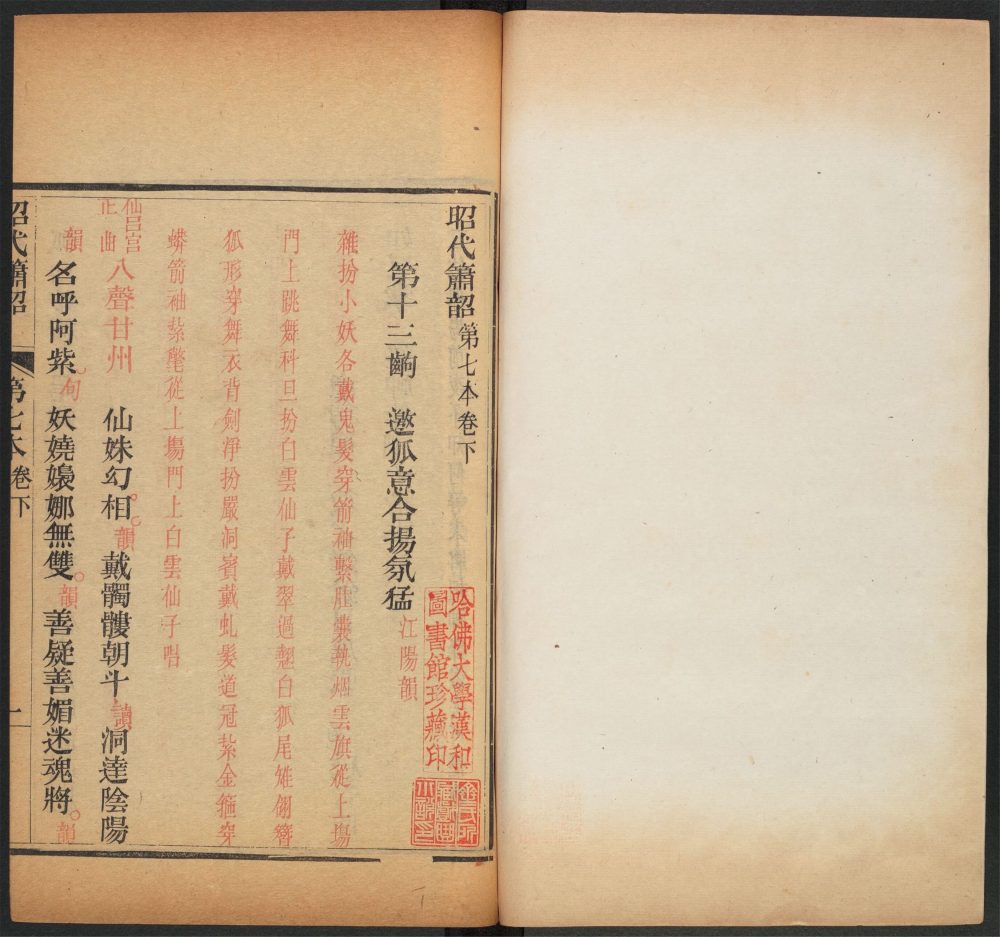 昭代簫韶 第七本卷下
第十三齣 邀狐意合揚氛猛 江陽韻
雜扮小妖各戴鬼髮穿箭袖繫肚囊執烟雲旗從上塲
門上跳舞科旦扮白雲仙子戴翠過翹白狐尾雉翎簪
狐形穿舞衣背劍淨扮嚴洞賓戴虬髮道冠紮金箍穿
蟒箭袖紮氅從上塲門上白雲仙子唱
仙呂宮正曲 八聲甘州 仙姝幻相。韻 戴髑髏朝斗讀 洞達陰陽
韻 名呼阿紫句 妖嬈嬝娜無雙。韻 善疑善媚迷魂將。韻
昭代簫韶 第七本卷下 一
哈佛大學漢和
圖書館珍藏印